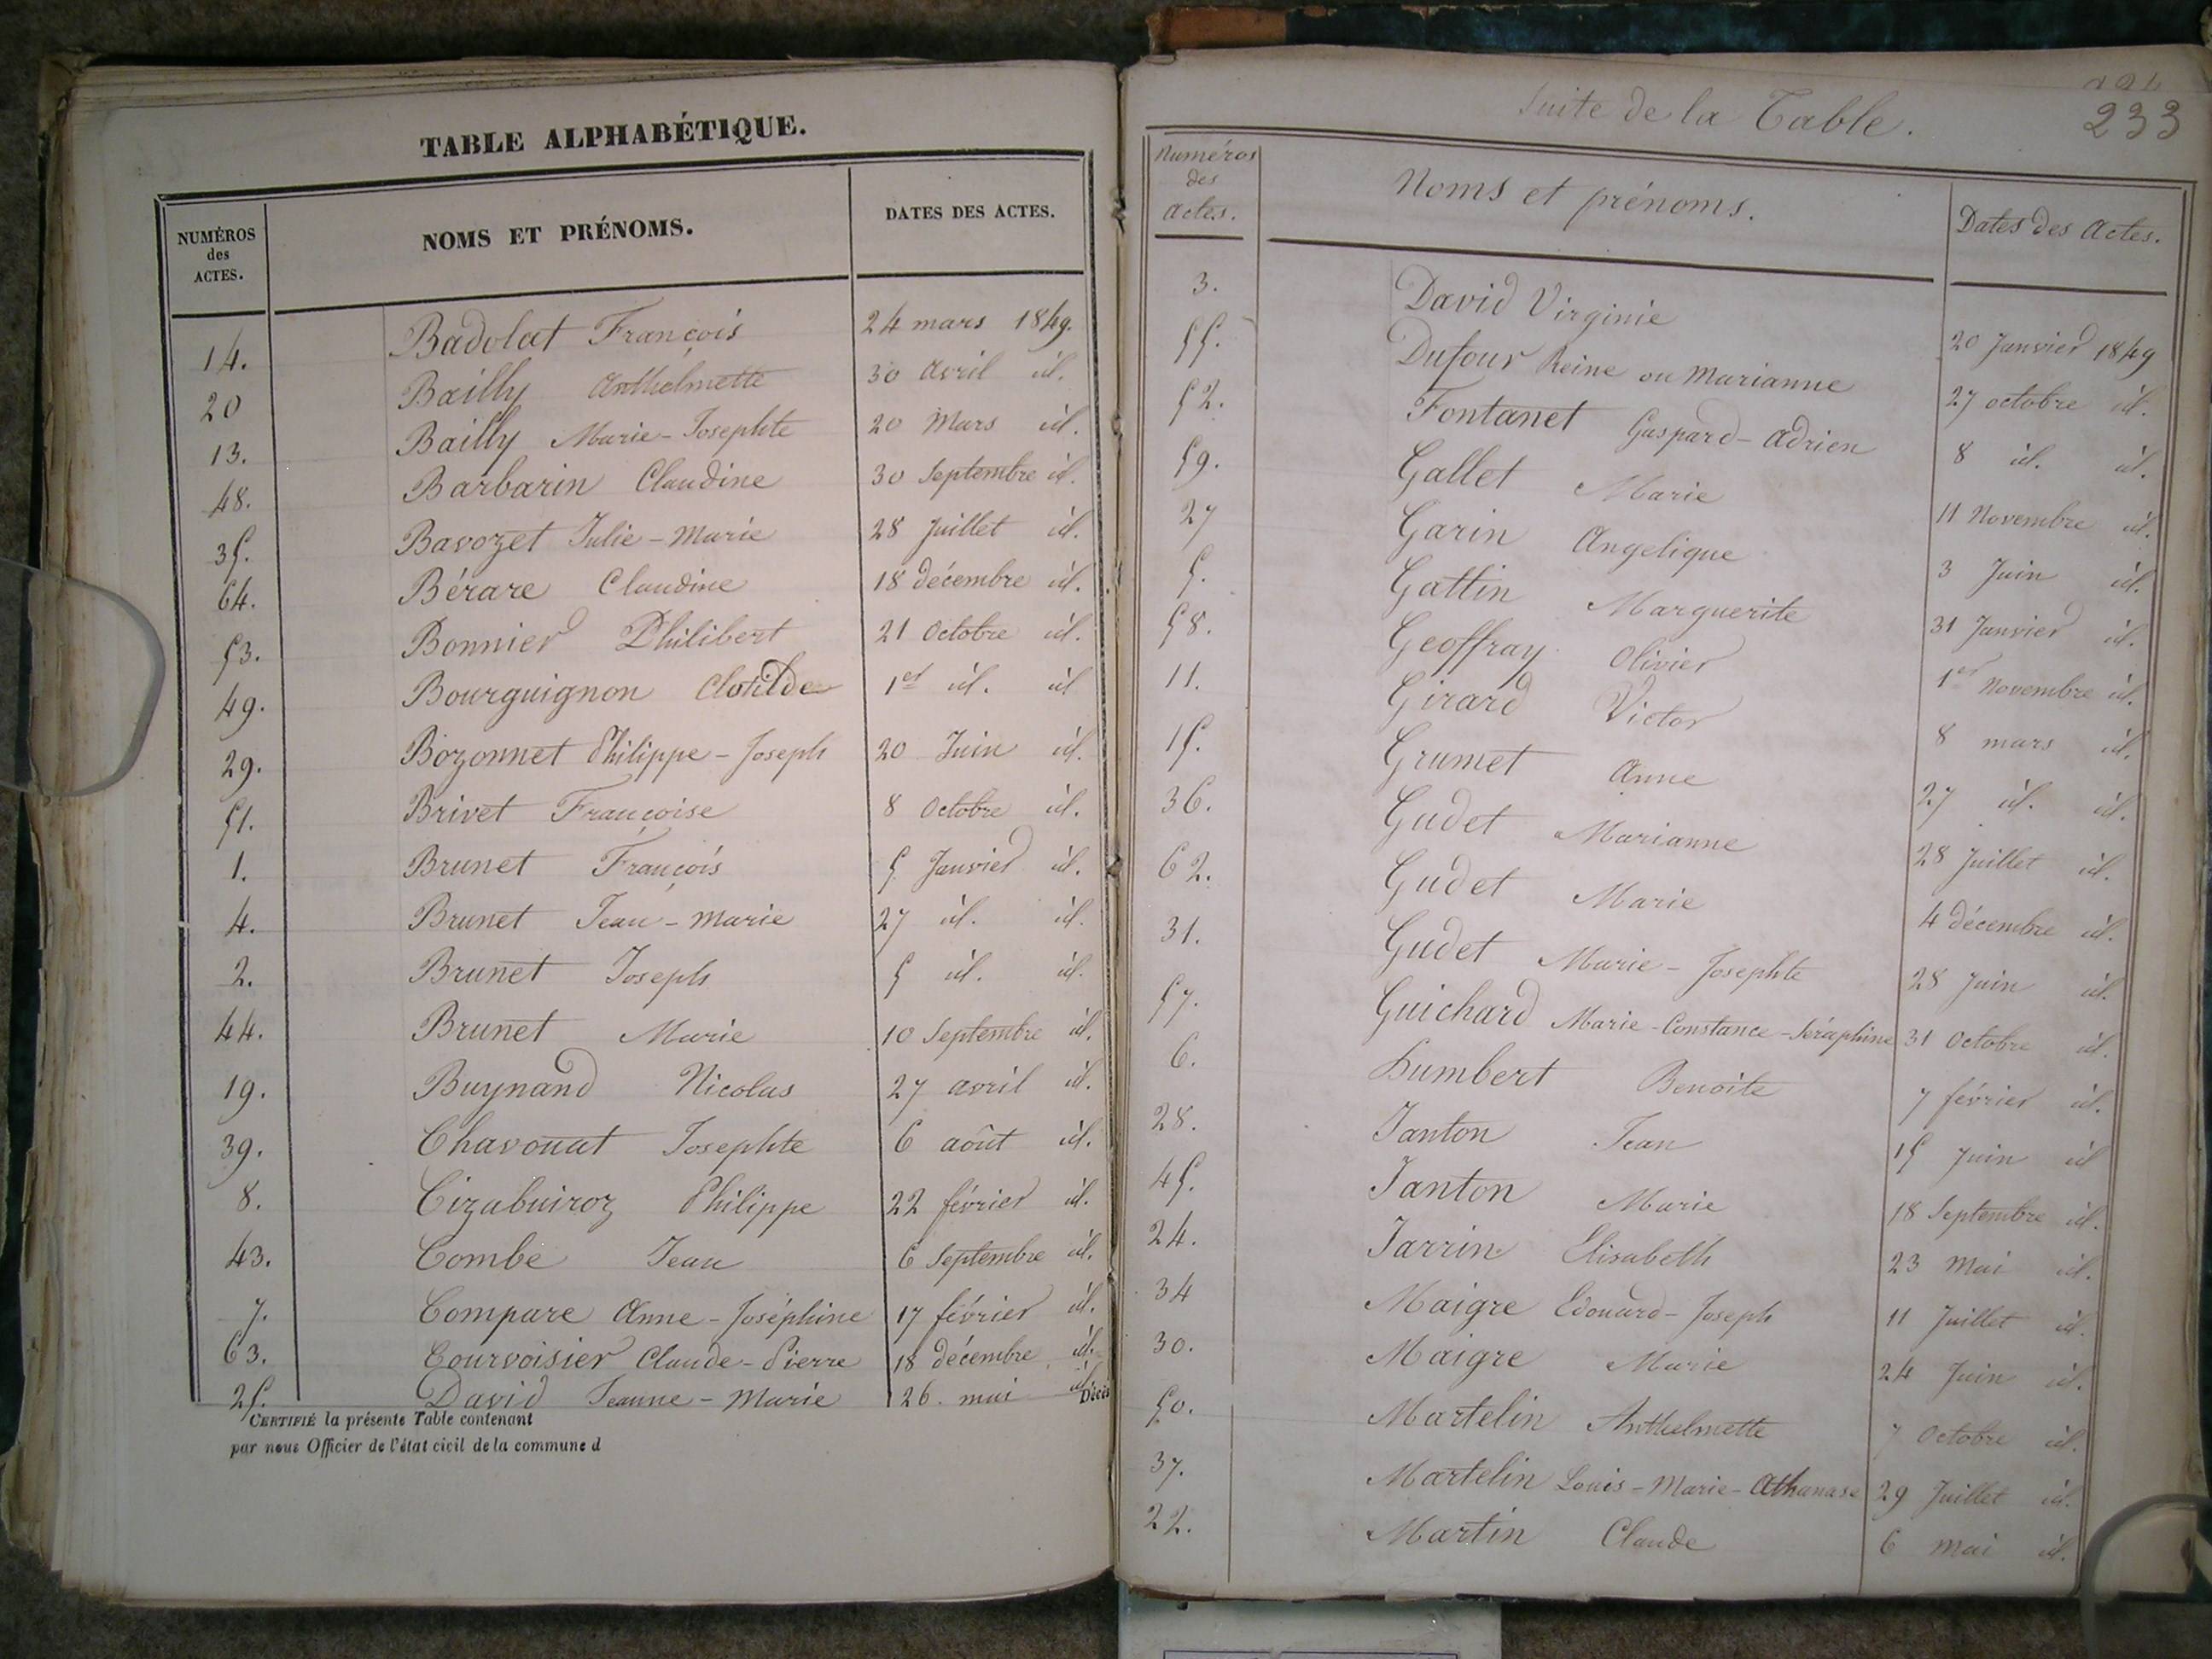 TABLE ALPHABÉTIQUE.
NUMÉROS des ACTES. NOMS ET PRÉNOMS. DATES DES ACTES.
14. Badolat François 24 mars 1849.
20 Bailly Anthelmette 30 avril id.
13. Bailly Marie-Josephte 20 Mars id.
48. Barbarin Claudine 30 Septembre id.
35. Bavozet Julie-Marie 28 Juillet id.
64. Bérare Claudine 18 décembre id.
53. Bonnier Philibert 21 Octobre id.
49. Bourguignon Clotilde 1er id. id
29. Bozonnet Philippe-Joseph 20 Juin id.
51. Brivet Françoise 8 Octobre id.
1. Brunet François 5 Janvier id.
4. Brunet Jean-Marie 27 id. id.
2. Brunet Joseph 5 id. id.
44. Brunet Marie 10 Septembre id.
19. Buynand Nicolas 27 avril id.
39. Chavouat Josephte 6 août id.
8. Cizabuiroz Philippe 22 février id.
43. Combe Jean 6 Septembre id.
7. Compare Anne-Joséphine 17 février id.
63. Courvoisier Claude-Pierre 18 décembre id.
25. David Jeanne-Marie 26. mai id. Décès
CERTIFIÉ la présente Table contenant
par nous Officier de l'état civil de la commune d
233
Suite de la Table.
Numéros des Actes. Noms et prénoms. Dates des Actes.
3. David Virginie 20 Janvier 1849
55. Dufour Reine ou Marianne 27 octobre id.
52. Fontanet Gaspard-Adrien 8 id. id.
59. Gallet Marie 11 Novembre id.
27 Garin Angelique 3 Juin id.
5. Gattin Marguerite 31 Janvier id.
58. Geoffray Olivier 1er Novembre id.
11. Girard Victor 8 mars id.
15. Grumet Anne 27 id. id.
36. Gudet Marianne 28 Juillet id.
62. Gudet Marie 4 décembre id.
31. Gudet Marie-Josephte 28 Juin id.
57. Guichard Marie-Constance-Séraphine 31 Octobre id.
6. Humbert Benoite 7 février id.
28. Janton Jean 15 Juin id
45. Janton Marie 18 Septembre id.
24. Jarrin Elisabeth 23 Mai id.
34 Maigre Edouard-Joseph 11 Juillet id.
30. Maigre Marie 24 Juin id.
50. Martelin Anthelmette 7 Octobre id.
37. Martelin Louis-Marie-Athanase 29 Juillet id.
22. Martin Claude 6 Mai id.